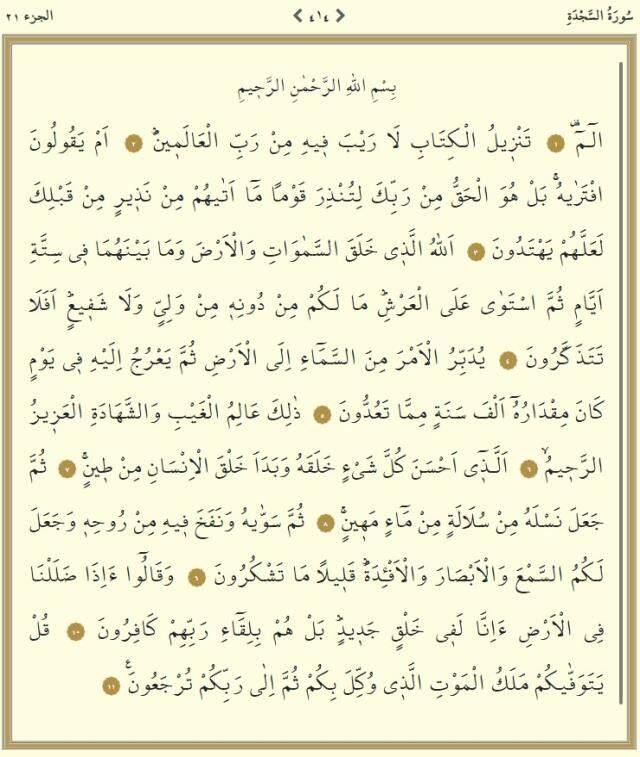 سُورَةُ السَّجْدَةِ ٤١٤ الجزء ٢١
بِسْمِ اللهِ الرَّحْمٰنِ الرَّحٖيمِ
الٓمٓ ۚ ١ تَنْزٖيلُ الْكِتَابِ لَا رَيْبَ فٖيهِ مِنْ رَبِّ الْعَالَمٖينَۜ ٢ اَمْ يَقُولُونَ
افْتَرٰيهُۚ بَلْ هُوَ الْحَقُّ مِنْ رَبِّكَ لِتُنْذِرَ قَوْمًا مَٓا اَتٰيهُمْ مِنْ نَذٖيرٍ مِنْ قَبْلِكَ
لَعَلَّهُمْ يَهْتَدُونَ ٣ اَللهُ الَّذٖى خَلَقَ السَّمٰوَاتِ وَالْاَرْضَ وَمَا بَيْنَهُمَا فٖى سِتَّةِ
اَيَّامٍ ثُمَّ اسْتَوٰى عَلَى الْعَرْشِۜ مَا لَكُمْ مِنْ دُونِهٖ مِنْ وَلِىٍّ وَلَا شَفٖيعٍۜ اَفَلَا
تَتَذَكَّرُونَ ٤ يُدَبِّرُ الْاَمْرَ مِنَ السَّمَٓاءِ اِلَى الْاَرْضِ ثُمَّ يَعْرُجُ اِلَيْهِ فٖى يَوْمٍ
كَانَ مِقْدَارُهُٓ اَلْفَ سَنَةٍ مِمَّا تَعُدُّونَ ٥ ذٰلِكَ عَالِمُ الْغَيْبِ وَالشَّهَادَةِ الْعَزٖيزُ
الرَّحٖيمُۙ ٦ اَلَّذٖٓى اَحْسَنَ كُلَّ شَیْءٍ خَلَقَهُ وَبَدَاَ خَلْقَ الْاِنْسَانِ مِنْ طٖينٍۚ ٧ ثُمَّ
جَعَلَ نَسْلَهُ مِنْ سُلَالَةٍ مِنْ مَٓاءٍ مَهٖينٍۚ ٨ ثُمَّ سَوّٰيهُ وَنَفَخَ فٖيهِ مِنْ رُوحِهٖ وَجَعَلَ
لَكُمُ السَّمْعَ وَالْاَبْصَارَ وَالْاَفْـِٔدَةَۜ قَلٖيلًا مَا تَشْكُرُونَ ٩ وَقَالُٓوا ءَاِذَا ضَلَلْنَا
فِى الْاَرْضِ ءَاِنَّا لَفٖى خَلْقٍ جَدٖيدٍۜ بَلْ هُمْ بِلِقَٓاءِ رَبِّهِمْ كَافِرُونَ ١٠ قُلْ
يَتَوَفّٰيكُمْ مَلَكُ الْمَوْتِ الَّذٖى وُكِّلَ بِكُمْ ثُمَّ اِلٰى رَبِّكُمْ تُرْجَعُونَ ۟ ١١